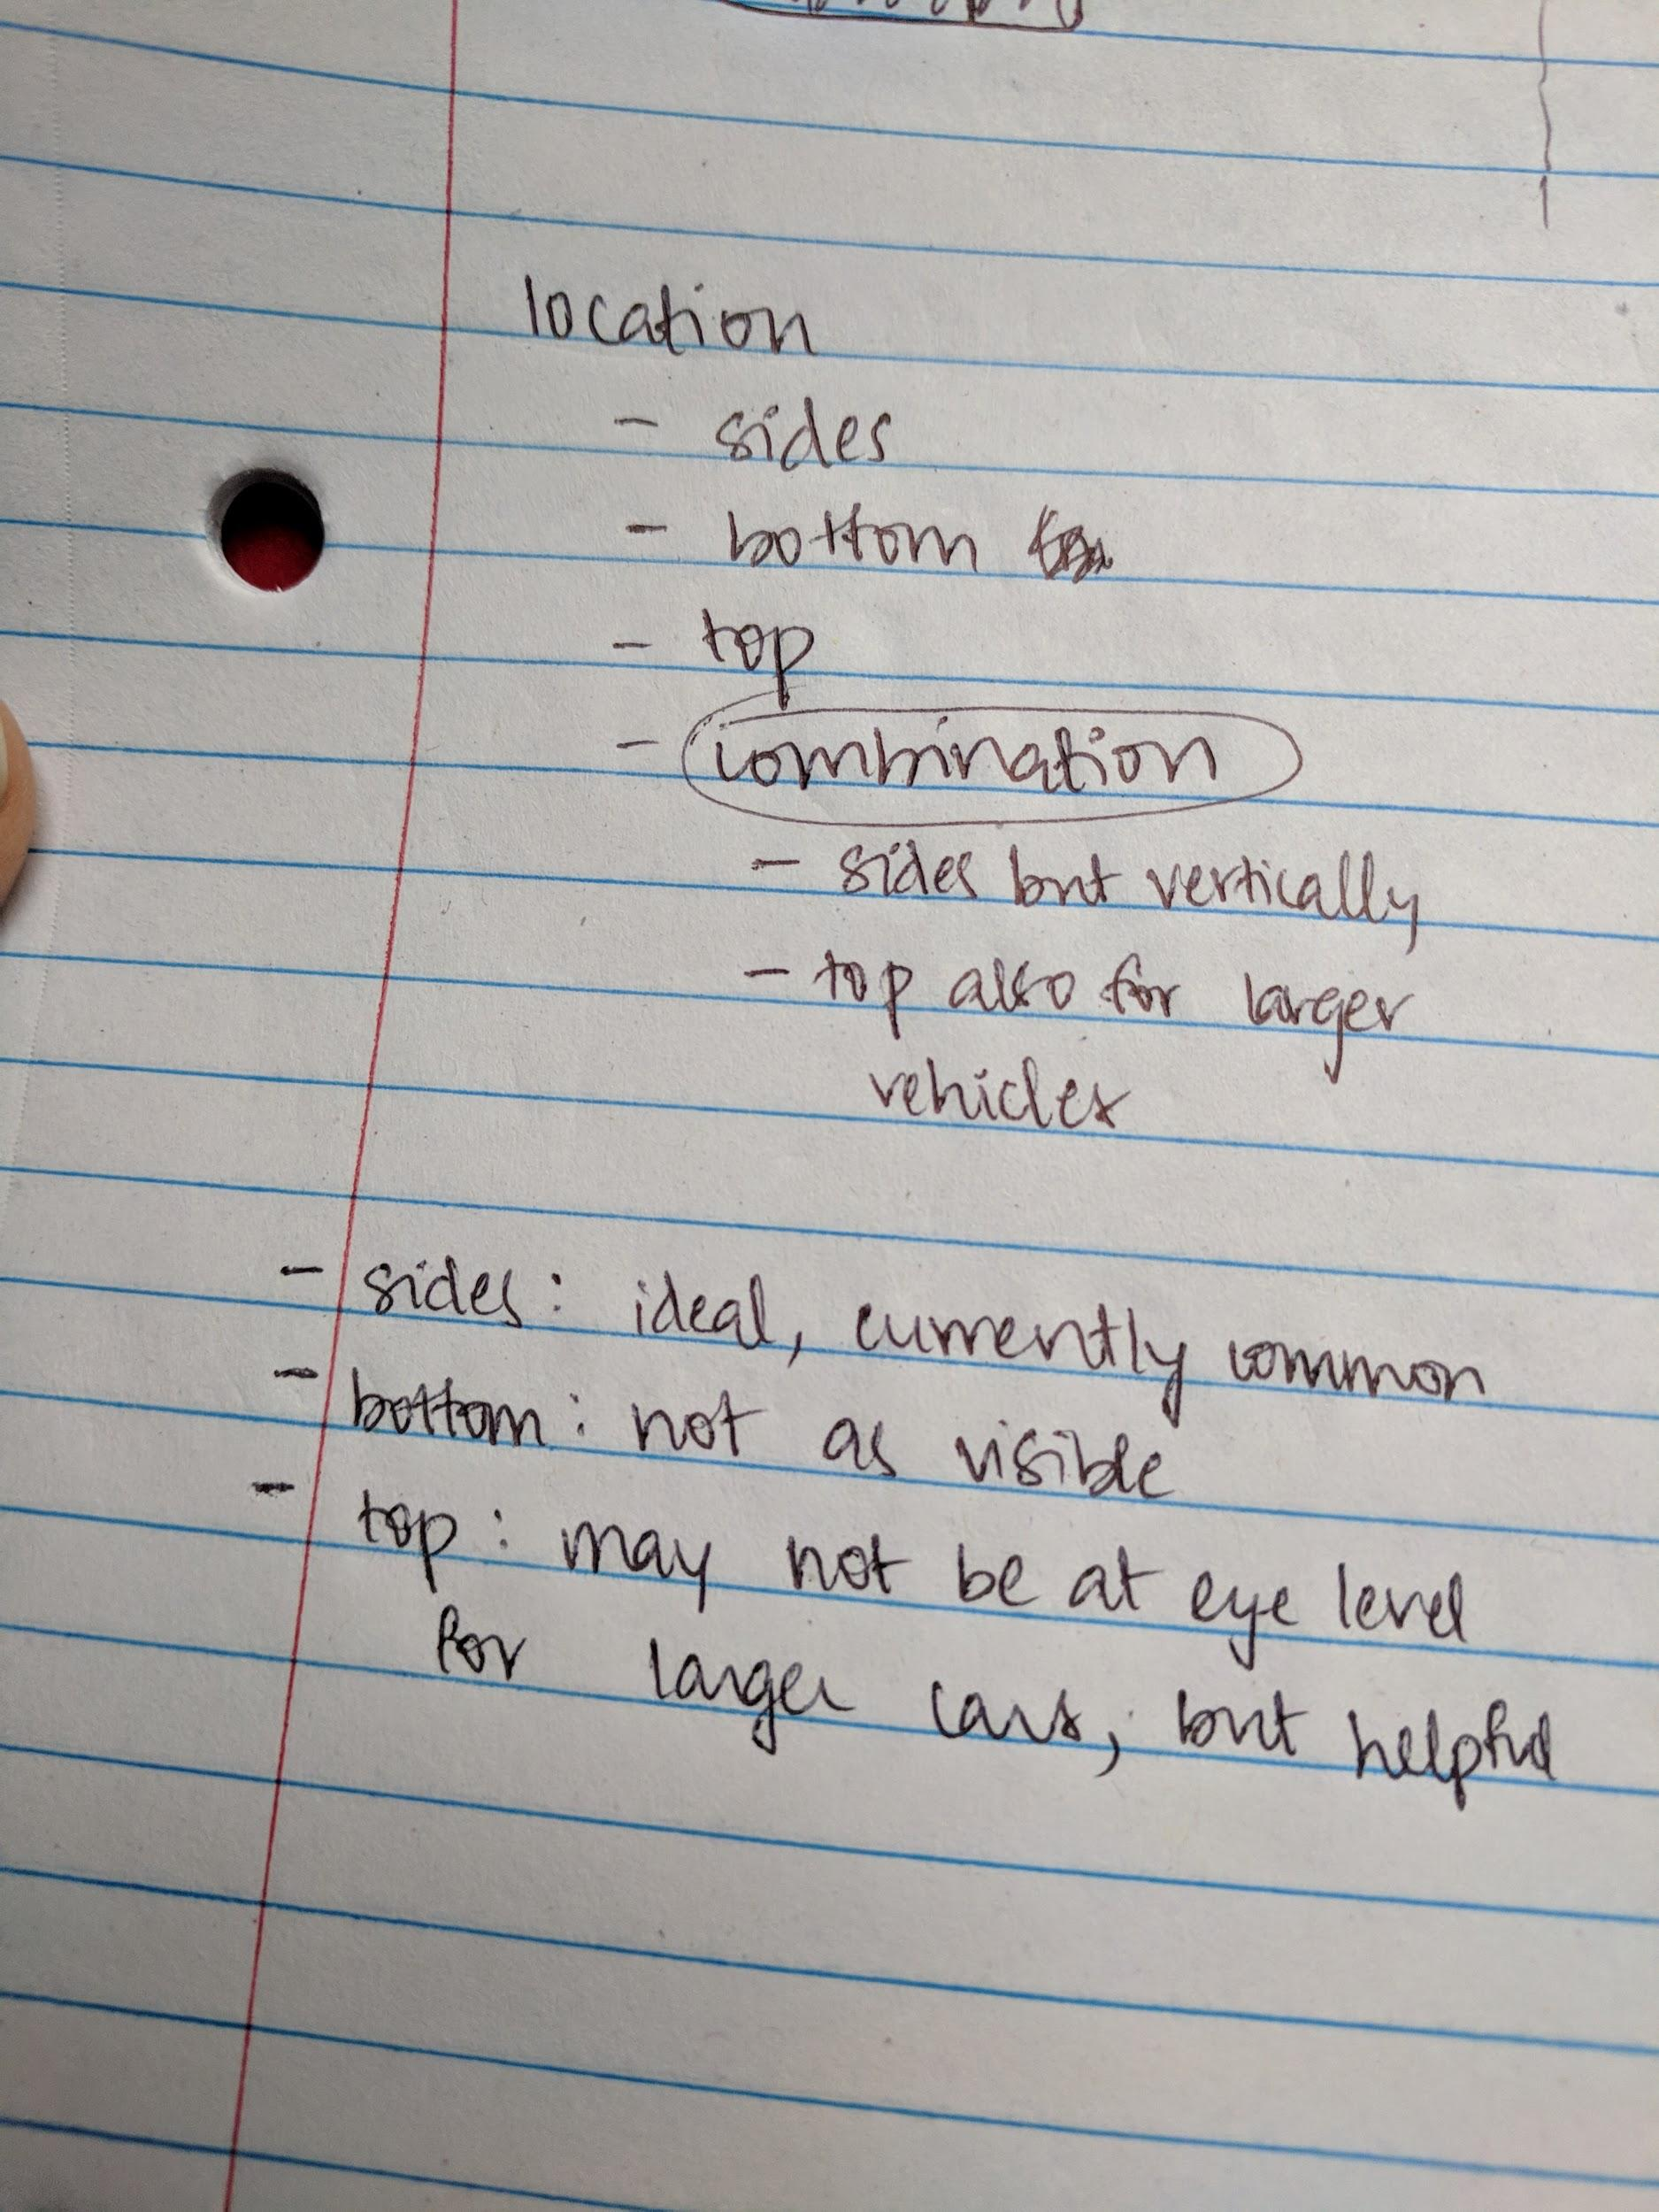 location
- sides
- bottom
- top
- combination
- sides but vertically
- top also for larger
vehicles
- sides: ideal, currently common
- bottom: not as visible
- top: may not be at eye level
for larger cars, but helpful